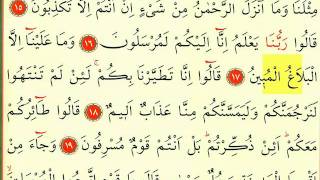 مِثْلُنَا وَمَا اَنْزَلَ الرَّحْمٰنُ مِنْ شَيْءٍ اِنْ اَنْتُمْ اِلَّا تَكْذِبُونَ ﴿١٥﴾
قَالُوا رَبُّنَا يَعْلَمُ اِنَّٓا اِلَيْكُمْ لَمُرْسَلُونَ ﴿١٦﴾ وَمَا عَلَيْنَٓا اِلَّا
الْبَلَاغُ الْمُبٖينُ ﴿١٧﴾ قَالُٓوا اِنَّا تَطَيَّرْنَا بِكُمْ لَئِنْ لَمْ تَنْتَهُوا
لَنَرْجُمَنَّكُمْ وَلَيَمَسَّنَّكُمْ مِنَّا عَذَابٌ اَلٖيمٌ ﴿١٨﴾ قَالُوا طَٓائِرُكُمْ
مَعَكُمْ اَئِنْ ذُكِّرْتُمْ بَلْ اَنْتُمْ قَوْمٌ مُسْرِفُونَ ﴿١٩﴾ وَجَٓاءَ مِنْ